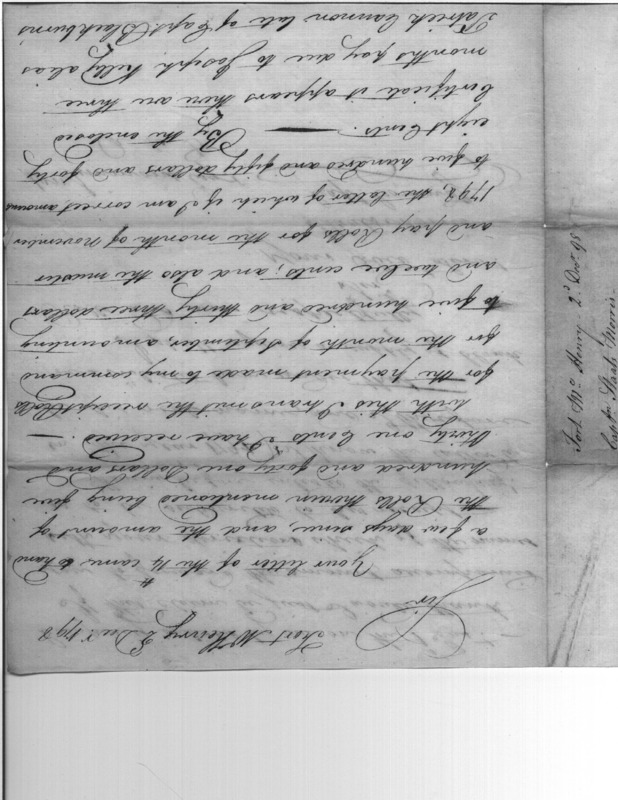 Fort McHenry 2 Decr 1798
Sir
Your letter of the 14 came to hand
a few days since, and the amount of
the Rolls therein mentioned being five
hundred and forty one Dollars and
thirty one Cents I have received. —
with this I transmit the receipt Rolls
for the payment made to my command
for the month of September, amounting
to five hundred and thirty three dollars
and twelve cents; and also the muster
and pay Rolls for the month of November
1798, the latter of which if I am correct amounts
to five hundred and fifty dollars and forty
eight Cents. — By the enclosed
Certificate it appears there are three
months pay due to Joseph Kelly alias
Patrick Cannon late of Capt Blackburn's
Fort McHenry 2d Decr 98
Captn Staats Morris